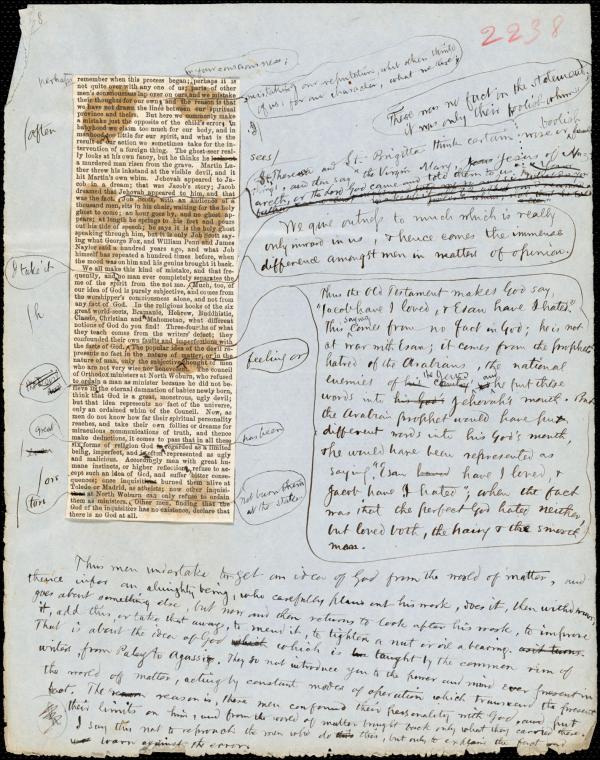 2238
in our consciousness;
mistaking our reputation, what others think
of us, for our character, what we are;
There was no fact in the statement,
it was only their foolish whim
remember when this process began; perhaps it is
not quite over with any one of us; parts of other
men's consciousness lap over on ours, and we mistake
their thoughts for our own; and the reason is that
we have not drawn the lines between our spiritual
province and theirs. But here we commonly make
a mistake just the opposite of the child's error. In
babyhood we claim too much for our body, and in
manhood too little for our spirit, and what is the
result of our action we sometimes take for the in-
tervention of a foreign thing. The ghost-seer real-
ly looks at his own fancy, but he thinks he
a murdered man risen from the grave. Martin Lu-
ther threw his inkstand at the visible devil, and it
hit Martin's own whim. Jehovah appeared to Ja-
cob in a dream; that was Jacob's story; Jacob
dreamed that Jehovah appeared to him, and that
was the fact. Job Scott, with an audience of a
thousand men, sits in his chair, waiting for the holy
ghost to come; an hour goes by, and no ghost ap-
pears; at length he springs to his feet and pours
out his tide of speech; he says it is the holy ghost
speaking through him, but it is only Job Scott say-
ing what George Fox, and William Penn and James
Naylor said a hundred years ago, and what Job
himself has repeated a hundred times before, when
the mood was on him and his genius brought it back.
We all make this kind of mistake, and that fre-
quently, and no man ever completely separates the
me of the spirit from the not me. Much, too, of
our idea of God is purely subjective, and comes from
the worshipper's consciousness alone, and not from
any fact of God. In the religious books of the six
great world-sects, Bramanic, Hebrew, Buddhistic,
Classic, Christian and Mahometan, what different
notions of God do you find! Three-fourths of what
they teach comes from the writers' defect; they
confounded their own faults and imperfections with
the facts of God. The popular idea of the devil re-
presents no fact in the nature of matter, or in the
nature of man, only the subjective thought of men
who are not very wise nor benevolent. The council
of Orthodox ministers at North Woburn, who refused
to ordain a man as minister because he did not be-
lieve in the eternal damnation of babies newly born,
think that God is a great, monstrous, ugly devil;
but that idea represents no fact of the universe,
only an ordained whim of the Council. Now, as
men do not know how far their spiritual personality
reaches, and take their own follies or dreams for
miraculous communications of truth, and thence
make deductions, it comes to pass that in all these
six forms of religion God is regarded as a limited
being, imperfect, and is often represented as ugly
and malicious. Accordingly men with great hu-
mane instincts, or higher reflection, refuse to ac-
cept such an idea of God, and suffer bitter conse-
quences; once inquisitors burned them alive at
Toledo or Madrid, as atheists; now other inquisi-
at North Woburn can only refuse to ordain
them as ministers. Other men, finding that the
God of the inquisitor has no existence, declare that
there is no God at all.
often
sees/
I take it
feeling or
Great
has been
tors
not burn them
at the stake;
St. Theresa and St. Brigitta think certain
and then say "the Virgin Mary,
We give outness to much which is really
only inward in us, & hence comes the immense
difference amongst men in matters of opinion.
Thus the Old Testament makes God say,
"Jacob have I loved, & Esau have I hated."
This saying comes from no fact in God; he is not
at war with Esau; it comes from the prophet's
hatred of the Arabians, the national
enemies of the Jews, and he put these
words into Jehovah's mouth. But
the Arabian prophet would have put
different words into his God's mouth,
who would have been represented as
saying "Esau have I loved &
Jacob have I hated"; when the fact
was that the perfect God hated neither,
but loved both, the hairy & the smooth
man.
Thus men undertake to get an idea of God from the world of matter, and
thence infer an almighty being, who carefully plans out his work, does it, then withdraws,
goes about something else, but now and then returns to look after his work, to improve
it, add this, or take that away, to mend it, to tighten a nut or oil a bearing.
That is about the idea of God which is taught by the common run of
writers from Paley to Agassiz. They do not introduce you to the power and mind ever present in
the world of matter, acting by constant modes of operation which transcend the present
fact. The reason is, these men confound their personality with God, and put
their limits on him, and from the world of matter brought back only what they carried there.
I say this not to reproach the men who do this, but only to explain the fact and
warn against the error.